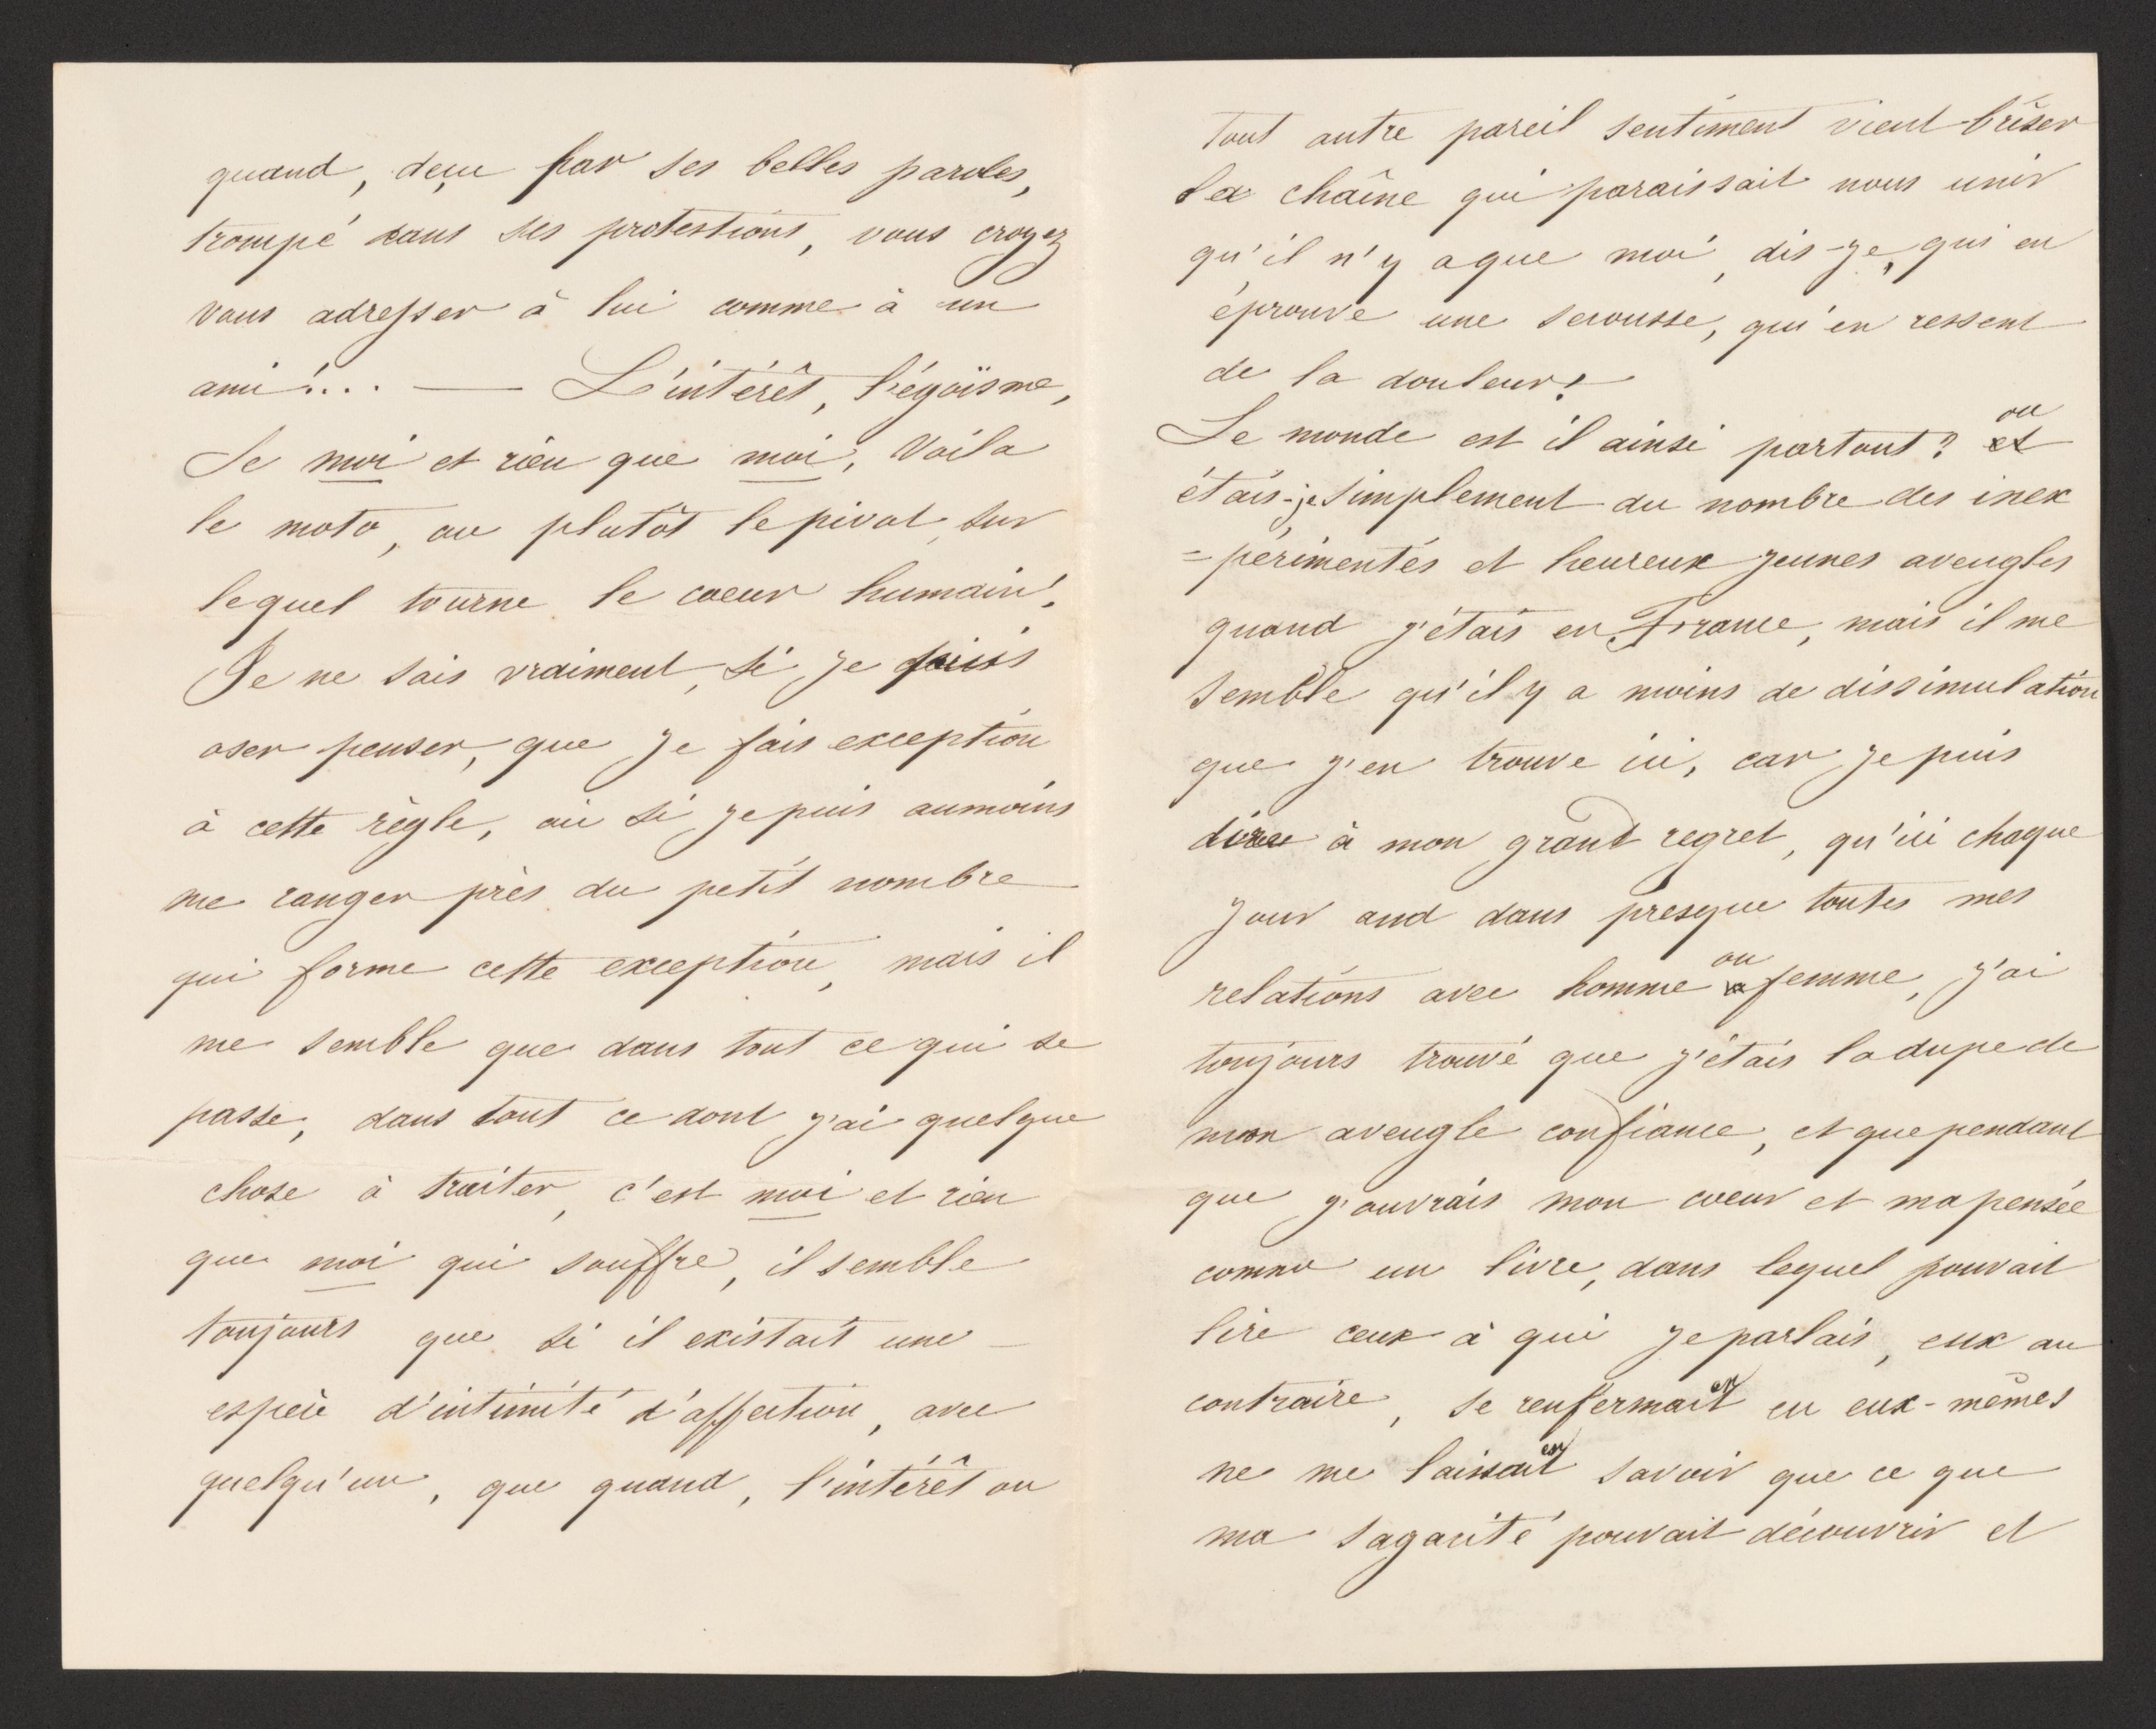 quand, deçu par ses belles paroles,
trompé dans ses protestions, vous croyez
vous adresser à lui comme à un
ami!... — L'intérêt, l'égoïsme,
Le moi et rien que moi, Voila
le moto, ou plutôt le pivot sur
lequel tourne le coeur humain!
Je ne sais vraiment, si je puis
oser penser, que je fais exception
à cette règle, ou si je puis aumoins
me ranger près du petit nombre
qui forme cette exception, mais il
me semble que dans tout ce qui se
passe, dans tout ce dont j'ai quelque
chose à traiter, c'est moi et rien
que moi qui souffre, il semble
toujours que si il existait une
espèce d'intimité d'affection, avec
quelqu'un, que quand, l'intérêt ou
tout autre pareil sentiment vient briser
la chaîne qui paraissait nous unir
qu'il n'y a que moi, dis-je, qui en
éprouve une secousse, qui en ressent
de la douleur!
Le monde est il ainsi partout? et ou
étais-je simplement du nombre des inex
=périmentés et heureux jeunes aveugles
quand j'étais en France, mais il me
semble qu'il y a moins de dissimulation
que j'en trouve ici, car je puis
dire à mon grand regret, qu'ici chaque
jour and dans presque toutes mes
relations avec homme ou femme, j'ai
toujours trouvé que j'étais la dupe de
mon aveugle confiance, et que pendant
que j'ouvrais mon coeur et ma pensée
comme un livre, dans lequel pouvait
lire ceux à qui je parlais, eux au
contraire, se renfermaient en eux-mêmes
ne me laissaient savoir que ce que
ma sagacité pouvait découvrir et